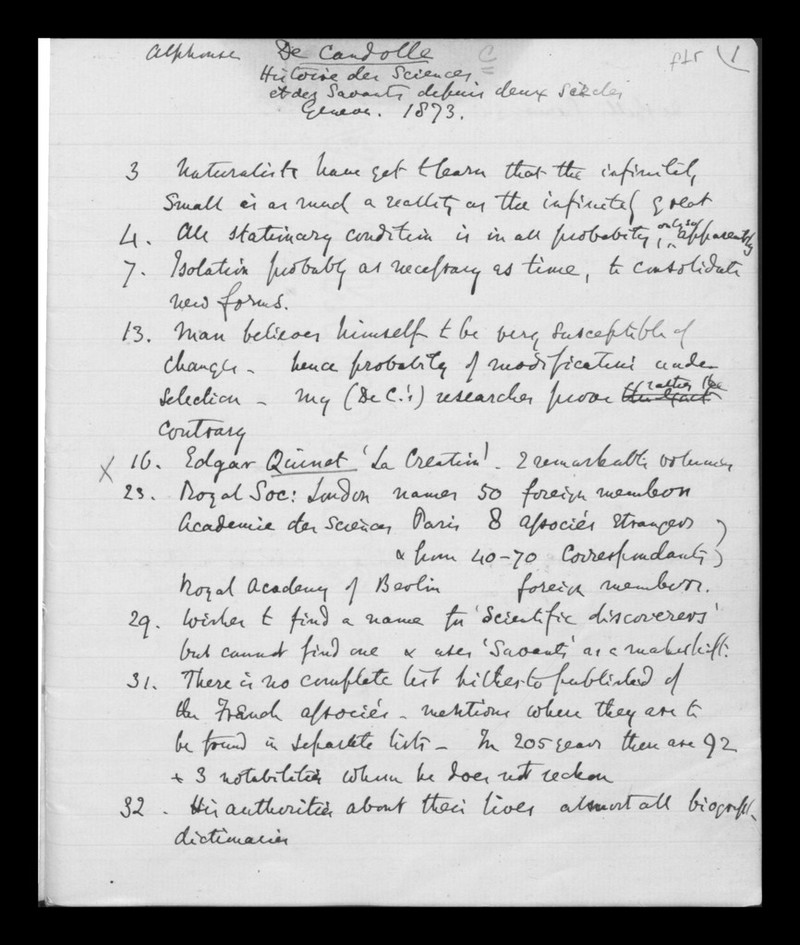 Alphonse De Candolle C 1
Histoire des Sciences
et des Savants depuis deux Siècles
Geneva. 1873.
3 Naturalists have yet to learn that the infinitely
small is as much a reality as the infinitely great
4. All stationary condition is in all probability, only so apparently
7. Isolation probably as necessary as time, to consolidate
new forms.
13. Man believes himself to be very susceptible of
change - hence probability of modification under
selection - my (De C.'s) researches prove rather the
contrary
X 16. Edgar Quinet 'La Creation'. 2 remarkable volumes
23. Royal Soc: London names 50 foreign members
Academie des Sciences Paris 8 associés Etrangers
& from 40-70 Correspondants
Royal Academy of Berlin foreign members.
29. Wishes to find a name for 'Scientific discoverers'
but cannot find one & uses 'Savants' as a makeshift.
31. There is no complete list hitherto published of
the French associés - mentions where they are to
be found in separate lists - In 205 years there are 92
+ 3 notabilities whom he does not reckon
32. His authorities about their lives almost all biograph.
dictionaries